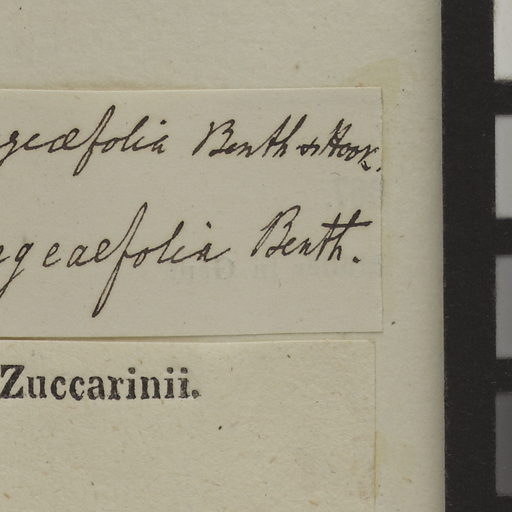 geæfolia Benth & Hook.
geaefolia Benth.
Zuccarinii.